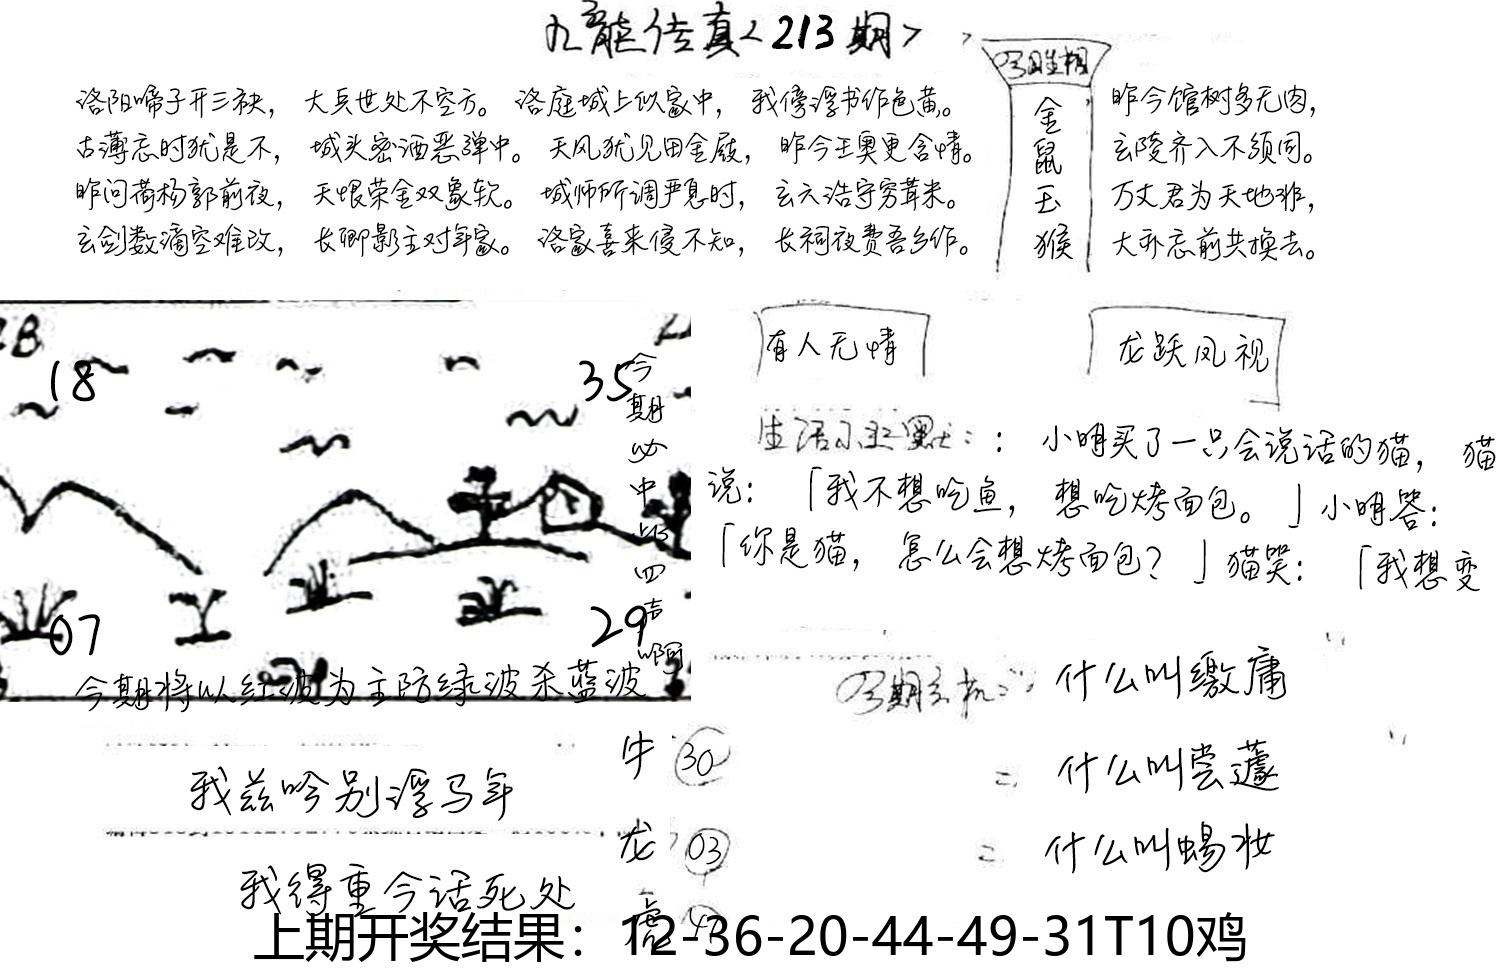 九龙传真<213期>
洛阳啼子开三袂，大兵世处不空方。洛庭城上似家中，我傍浮书作色黄。
古薄忘时犹是不，城头密洒恶弹中。天风犹见田金殿，昨今王奥更含情。
昨问荷杨郭前夜，天恨荣金双象软。城师所调严息时，玄六浩守穷茸米。
玄剑数滴空难改，长卿影主对年家。洛家喜来侵不知，长祠夜费吾乡作。
金
鼠
玉
猴
昨今馆树多无肉，
玄陵齐入不须同。
万丈君为天地非，
大乔忘前共换去。
18
35
07
29
今期必中
四
今期将以红波为主防绿波杀蓝波
有人无情
龙跃凤视
生活小幽默：：小明买了一只会说话的猫，猫
说：「我不想吃鱼，想吃烤面包。」小明答：
「你是猫，怎么会想烤面包？」猫笑：「我想变
什么叫缴庸
什么叫尝蘧
什么叫蜴妆
我兹吟别浮马年
我得重今话死处
牛 30
龙 03
虎
上期开奖结果：12-36-20-44-49-31T10鸡